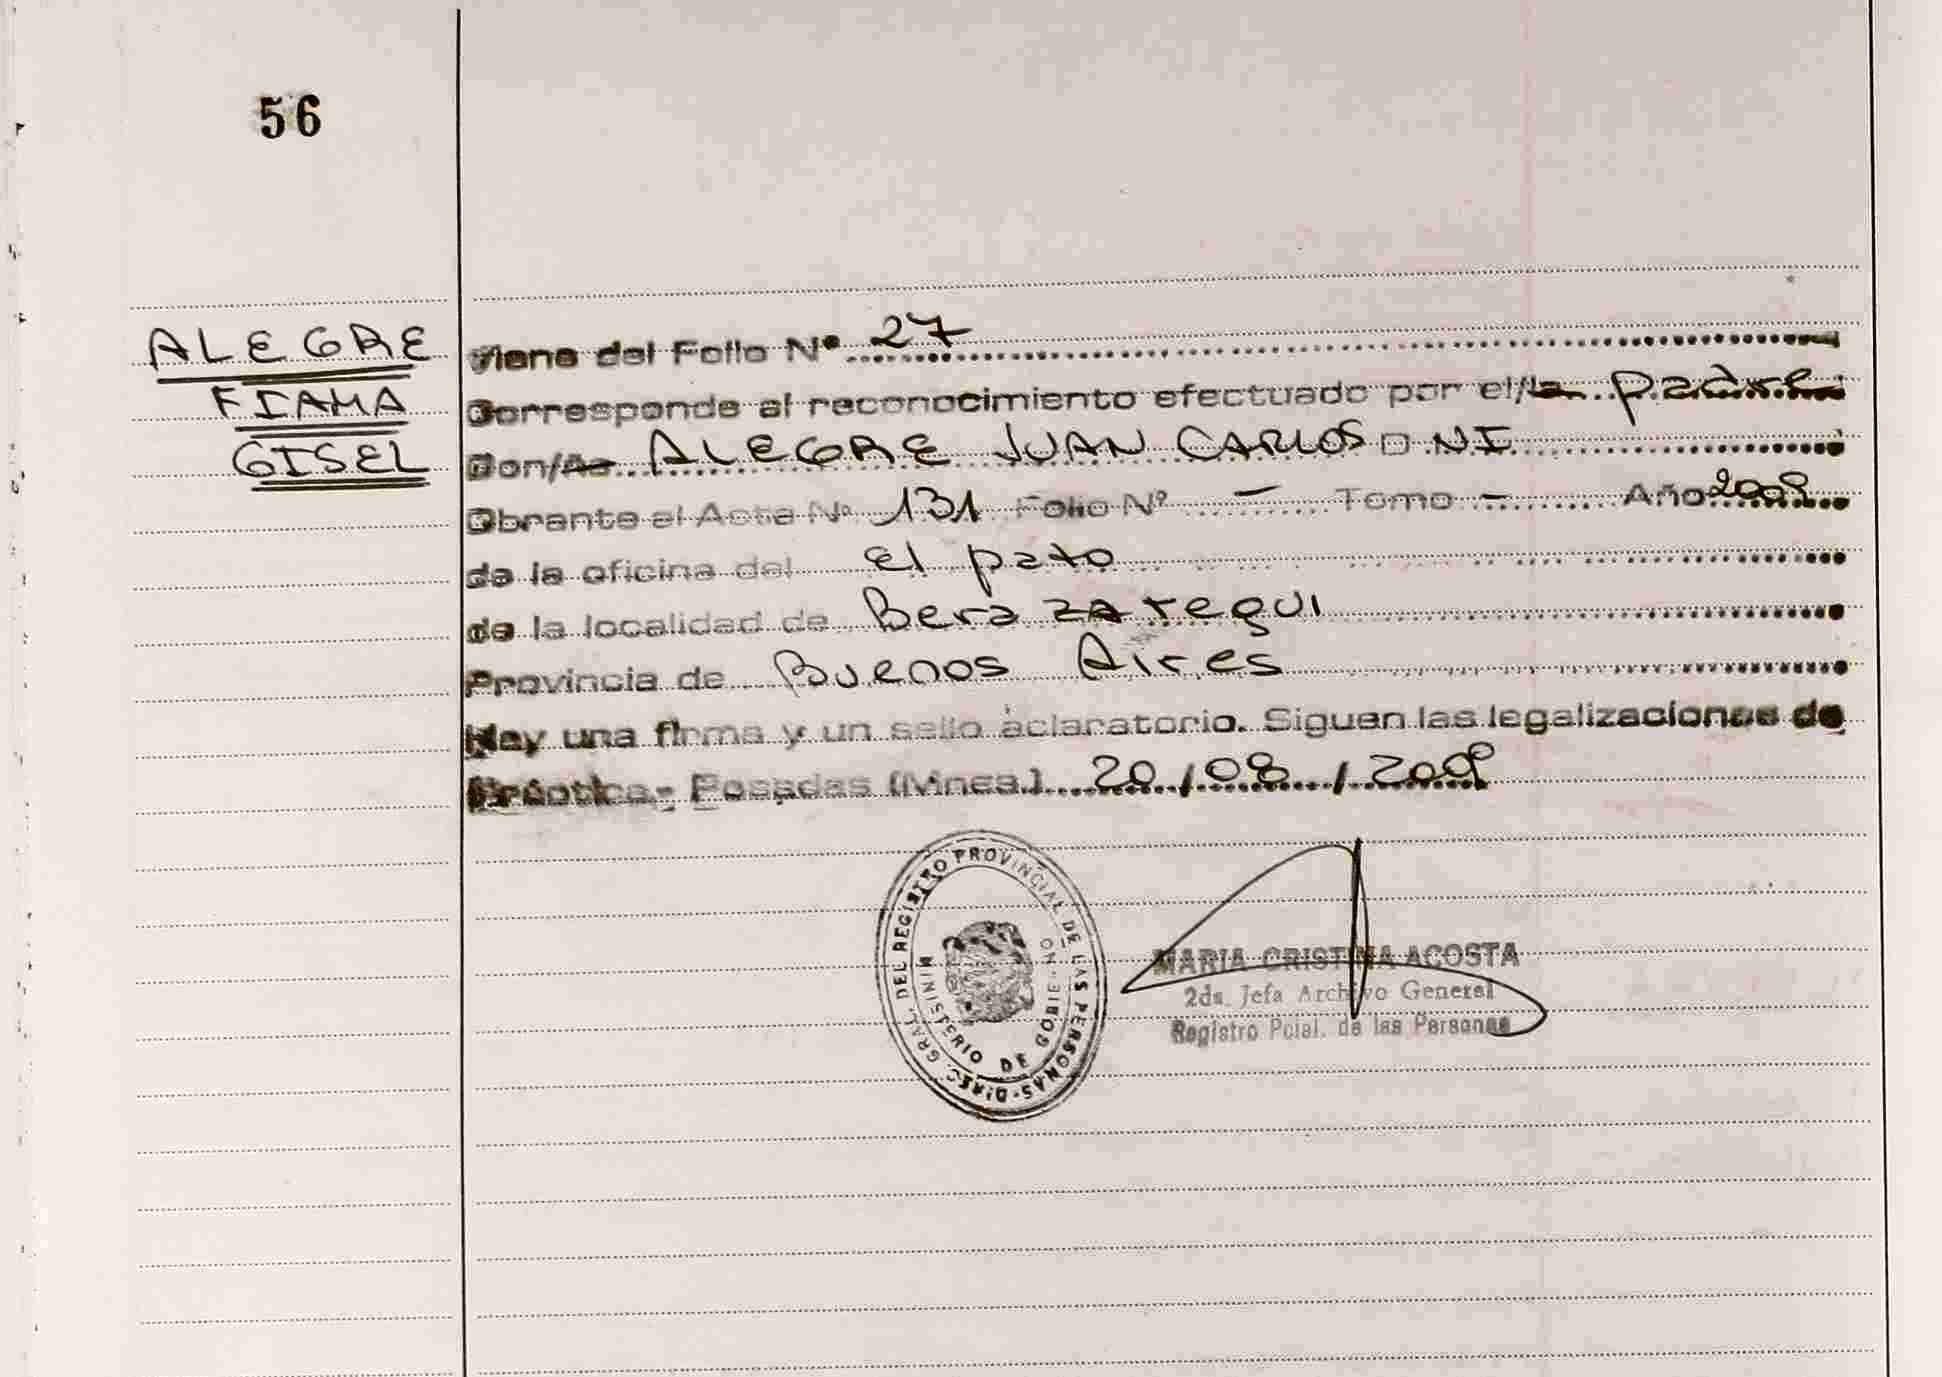 56
ALEGRE
FIAMA
GISEL
Viene del Folio Nº 27
Corresponde al reconocimiento efectuado por el/la padre
Don/ña ALEGRE JUAN CARLOS DNI
Obrante al Acta Nº 131 Folio Nº - Tomo - Año 2009
de la oficina del el pato
de la localidad de Berazategui
Provincia de Buenos Aires
Hay una firma y un sello aclaratorio. Siguen las legalizaciones de
Práctica.- Posadas (Mnes.) 20/08/2009
DIREC. GRAL DEL REGISTRO PROVINCIAL DE LAS PERSONAS
MINISTERIO DE GOBIERNO
MARIA CRISTINA ACOSTA
2da. Jefa Archivo General
Registro Pcial. de las Personas